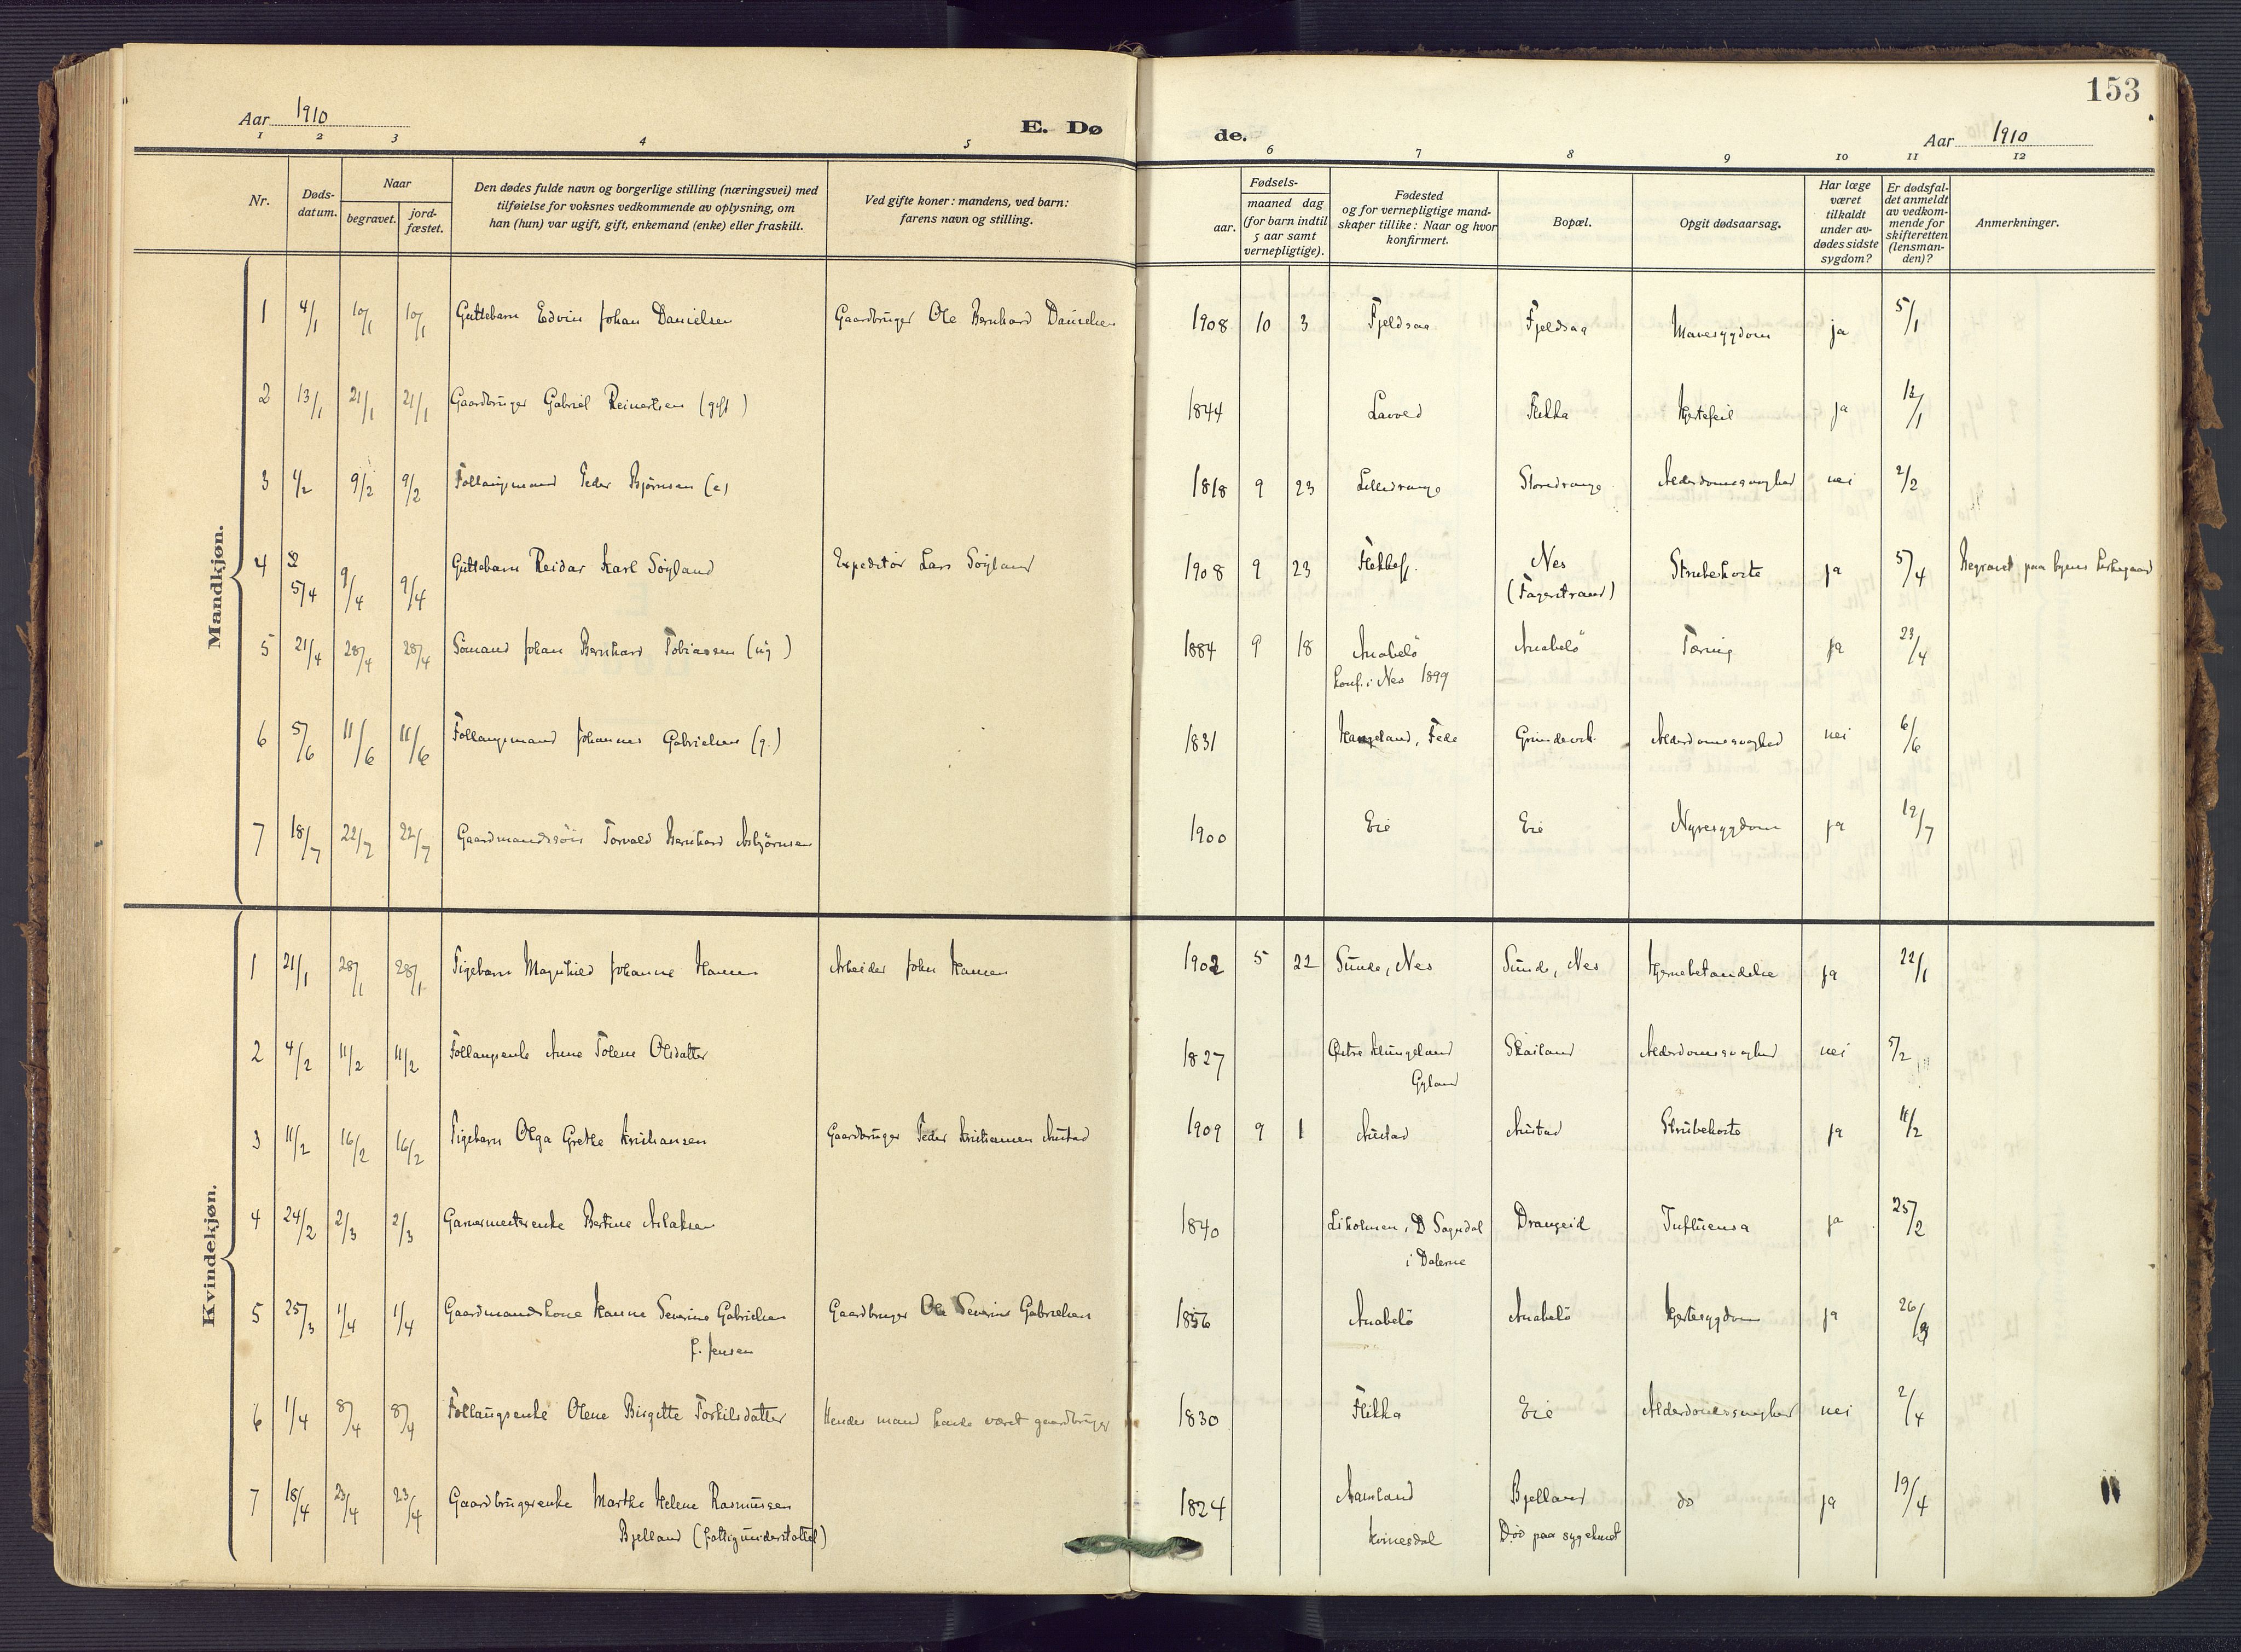 153
Aar 1910
E. Dø
de.
Aar 1910
1 2 3 4 5 6 7 8 9 10 11 12
Nr.
Døds-
datum.
Naar
begravet.
jord-
fæstet.
Den dødes fulde navn og borgerlige stilling (næringsvei) med
tilføielse for voksnes vedkommende av oplysning, om
han (hun) var ugift, gift, enkemand (enke) eller fraskilt.
Ved gifte koner: mandens, ved barn:
farens navn og stilling.
Fødsels-
aar.
maaned dag
(for barn indtil
5 aar samt
vernepligtige).
Fødested
og for vernepligtige mand-
skaper tillike: Naar og hvor
konfirmert.
Bopæl.
Opgit dødsaarsag.
Har læge
været
tilkaldt
under av-
dødes sidste
sygdom?
Er dødsfal-
det anmeldt
av vedkom-
mende for
skifteretten
(lensman-
den)?
Anmerkninger.
Mandkjøn.
1 4/1 10/1 10/1 Guttebarn Edvin Johan Danielsen Gaardbruger Ole Bernhard Danielsen 1908 10 3 Fjeldsaa Fjeldsaa Mavesygdom ja 5/1
2 13/1 21/1 21/1 Gaardbruger Gabriel Reinertsen (gift) 1844 Lavold Flikka Hjertefeil ja 13/1
3 1/2 9/2 9/2 Follaugsmand Peder Bjørnsen (e) 1818 9 23 Lilledrange Storedrange Alderdomssvaghed nei 2/2
4 5/4 9/4 9/4 Guttebarn Reidar Karl Söyland Expeditör Lars Söyland 1908 9 23 Flekkefj. Nes
(Fagerstrand) Strubehoste ja 5/4 Begravet paa byens kirkegaard
5 21/4 28/4 28/4 Sömand Johan Bernhard Tobiassen (ug) 1884 9 18 Anabelö
konf. i Nes 1899 Anabelö Tæring ja 23/4
6 5/6 11/6 11/6 Follaugsmand Johannes Gabrielsen (g.) 1831 Haugeland, Fede Grundevik Alderdomssvaghed nei 6/6
7 18/7 22/7 22/7 Gaardmandssön Torvald Bernhard Asbjörnsen 1900 Eie Eie Nyresygdom ja 19/7
Kvindekjøn.
1 21/1 28/1 28/1 Pigebarn Magnhild Johanne Hansen Arbeider John Hansen 1902 5 22 Sunde, Nes Sunde, Nes Hjernebetændelse ja 22/1
2 4/2 11/2 11/2 Follaugsenke Anne Tolene Olsdatter 1827 Östre Klungeland
Gyland Skailand Alderdomssvaghed nei 5/2
3 11/2 16/2 16/2 Pigebarn Olga Grethe Kristiansen Gaardbruger Peder Kristiansen Austad 1909 9 1 Austad Austad Strubehoste ja 11/2
4 24/2 2/3 2/3 Garvermesterenke Bertine Aslaksen 1840 Liholmen, D Sogndal
i Dalerne Drangeid Influensa ja 25/2
5 25/3 1/4 1/4 Gaardmandskone Hanne Severine Gabrielsen
f. Jensen Gaardbruger Ole Severin Gabrielsen 1856 Anabelö Anabelö Hjertesygdom ja 26/3
6 1/4 8/4 8/4 Follaugsenke Olene Birgitte Torkilsdatter Hendes mand havde været gaardbruger 1830 Flikka Eie Alderdomssvaghed nei 2/4
7 18/4 23/4 23/4 Gaardbrugerenke Marthe Helene Rasmussen
Bjelland (fattigunderstøttet) 1824 Aamland
Kvinesdal Bjelland
Död paa sygehuset do ja 19/4